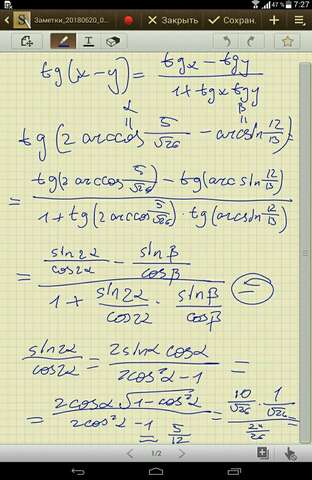 Заметки_20180620_0...
47 % 7:27
Закрыть Сохран.
tg(x-y) = (tgx - tgy)/(1+tgx tgy)
α β
tg(2 arccos 5/√26 - arcsin 12/13) =
= (tg(2 arccos 5/√26) - tg(arcsin 12/13))/(1+tg(2 arccos 5/√26) · tg(arcsin 12/13))
= (sin2α/cos2α - sinβ/cosβ)/(1 + sin2α/cos2α · sinβ/cosβ) =
sin2α/cos2α = 2sinα cosα/(2cos²α-1) =
= 2cosα √(1-cos²α)/(2cos²α-1) = (10/√26 · 1/√26)/(24/26) =
= 5/12
1/2